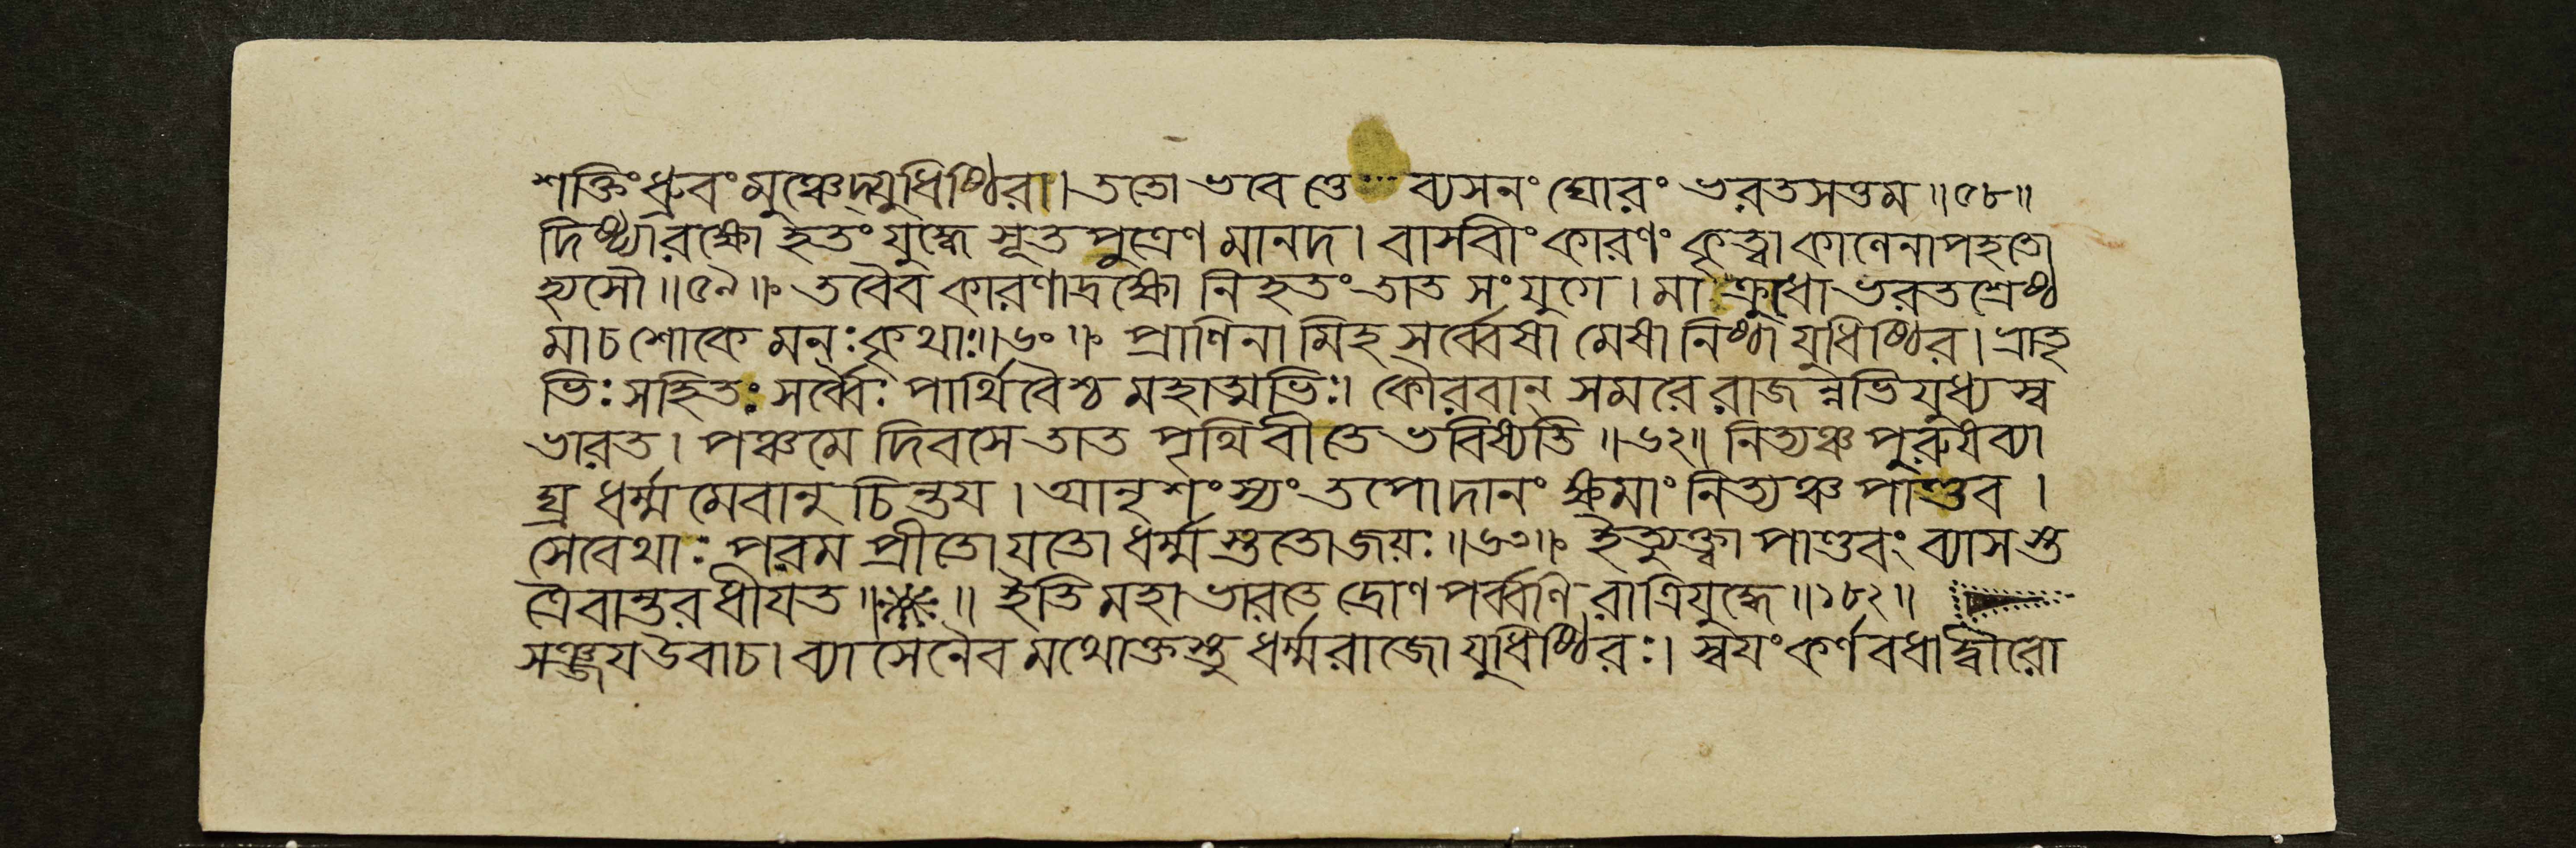 শক্তিংধ্রুবংমুঞ্চেদ্যুধিষ্ঠিরা। ততো ভবেত্তে ব্যসনং ঘোরং ভরতসত্তম॥৫৮॥
দিষ্ঠ্যারক্ষো হতং যুদ্ধে সূতপুত্রেণ মানদ। বাসবীং কারণং কৃত্বা কালেনাপহতো
হ্যসৌ॥৫৯॥ তবৈব কারণাদ্রক্ষো নিহতং তাত সংযুগে। মা ক্রুধো ভরতশ্রেষ্ঠ
মা চ শোকে মনঃ কৃথাঃ॥৬০॥ প্রাণিনামিহ সর্ব্বেষামেষা নিষ্ঠা যুধিষ্ঠির। ভ্রাতৃ
ভিঃ সহিতঃ সর্ব্বৈঃ পার্থিবৈশ্চ মহাত্মভিঃ। কৌরবান্ সমরে রাজন্নভিযুধ্যস্ব
ভারত। পঞ্চমে দিবসে তাত পৃথিবী তে ভবিষ্যতি॥৬২॥ নিত্যঞ্চ পুরুষব্যা
ঘ্র ধর্ম্মমেবানুচিন্তয। আনৃশংস্যং তপো দানং ক্ষমাং নিত্যঞ্চ পাণ্ডব।
সেবেথাঃ পরমপ্রীতো যতো ধর্ম্মস্ততো জয়ঃ॥৬৩॥ ইত্যুক্ত্বা পাণ্ডবং ব্যাসস্ত
ত্রৈবান্তরধীযত॥ ॥ ইতি মহাভারতে দ্রোণপর্ব্বণি রাত্রিযুদ্ধে॥১৮২॥
সঞ্জয উবাচ। ব্যাসেনৈবমথোক্তস্তু ধর্ম্মরাজো যুধিষ্ঠিরঃ। স্বযং কর্ণবধাদ্বীরো